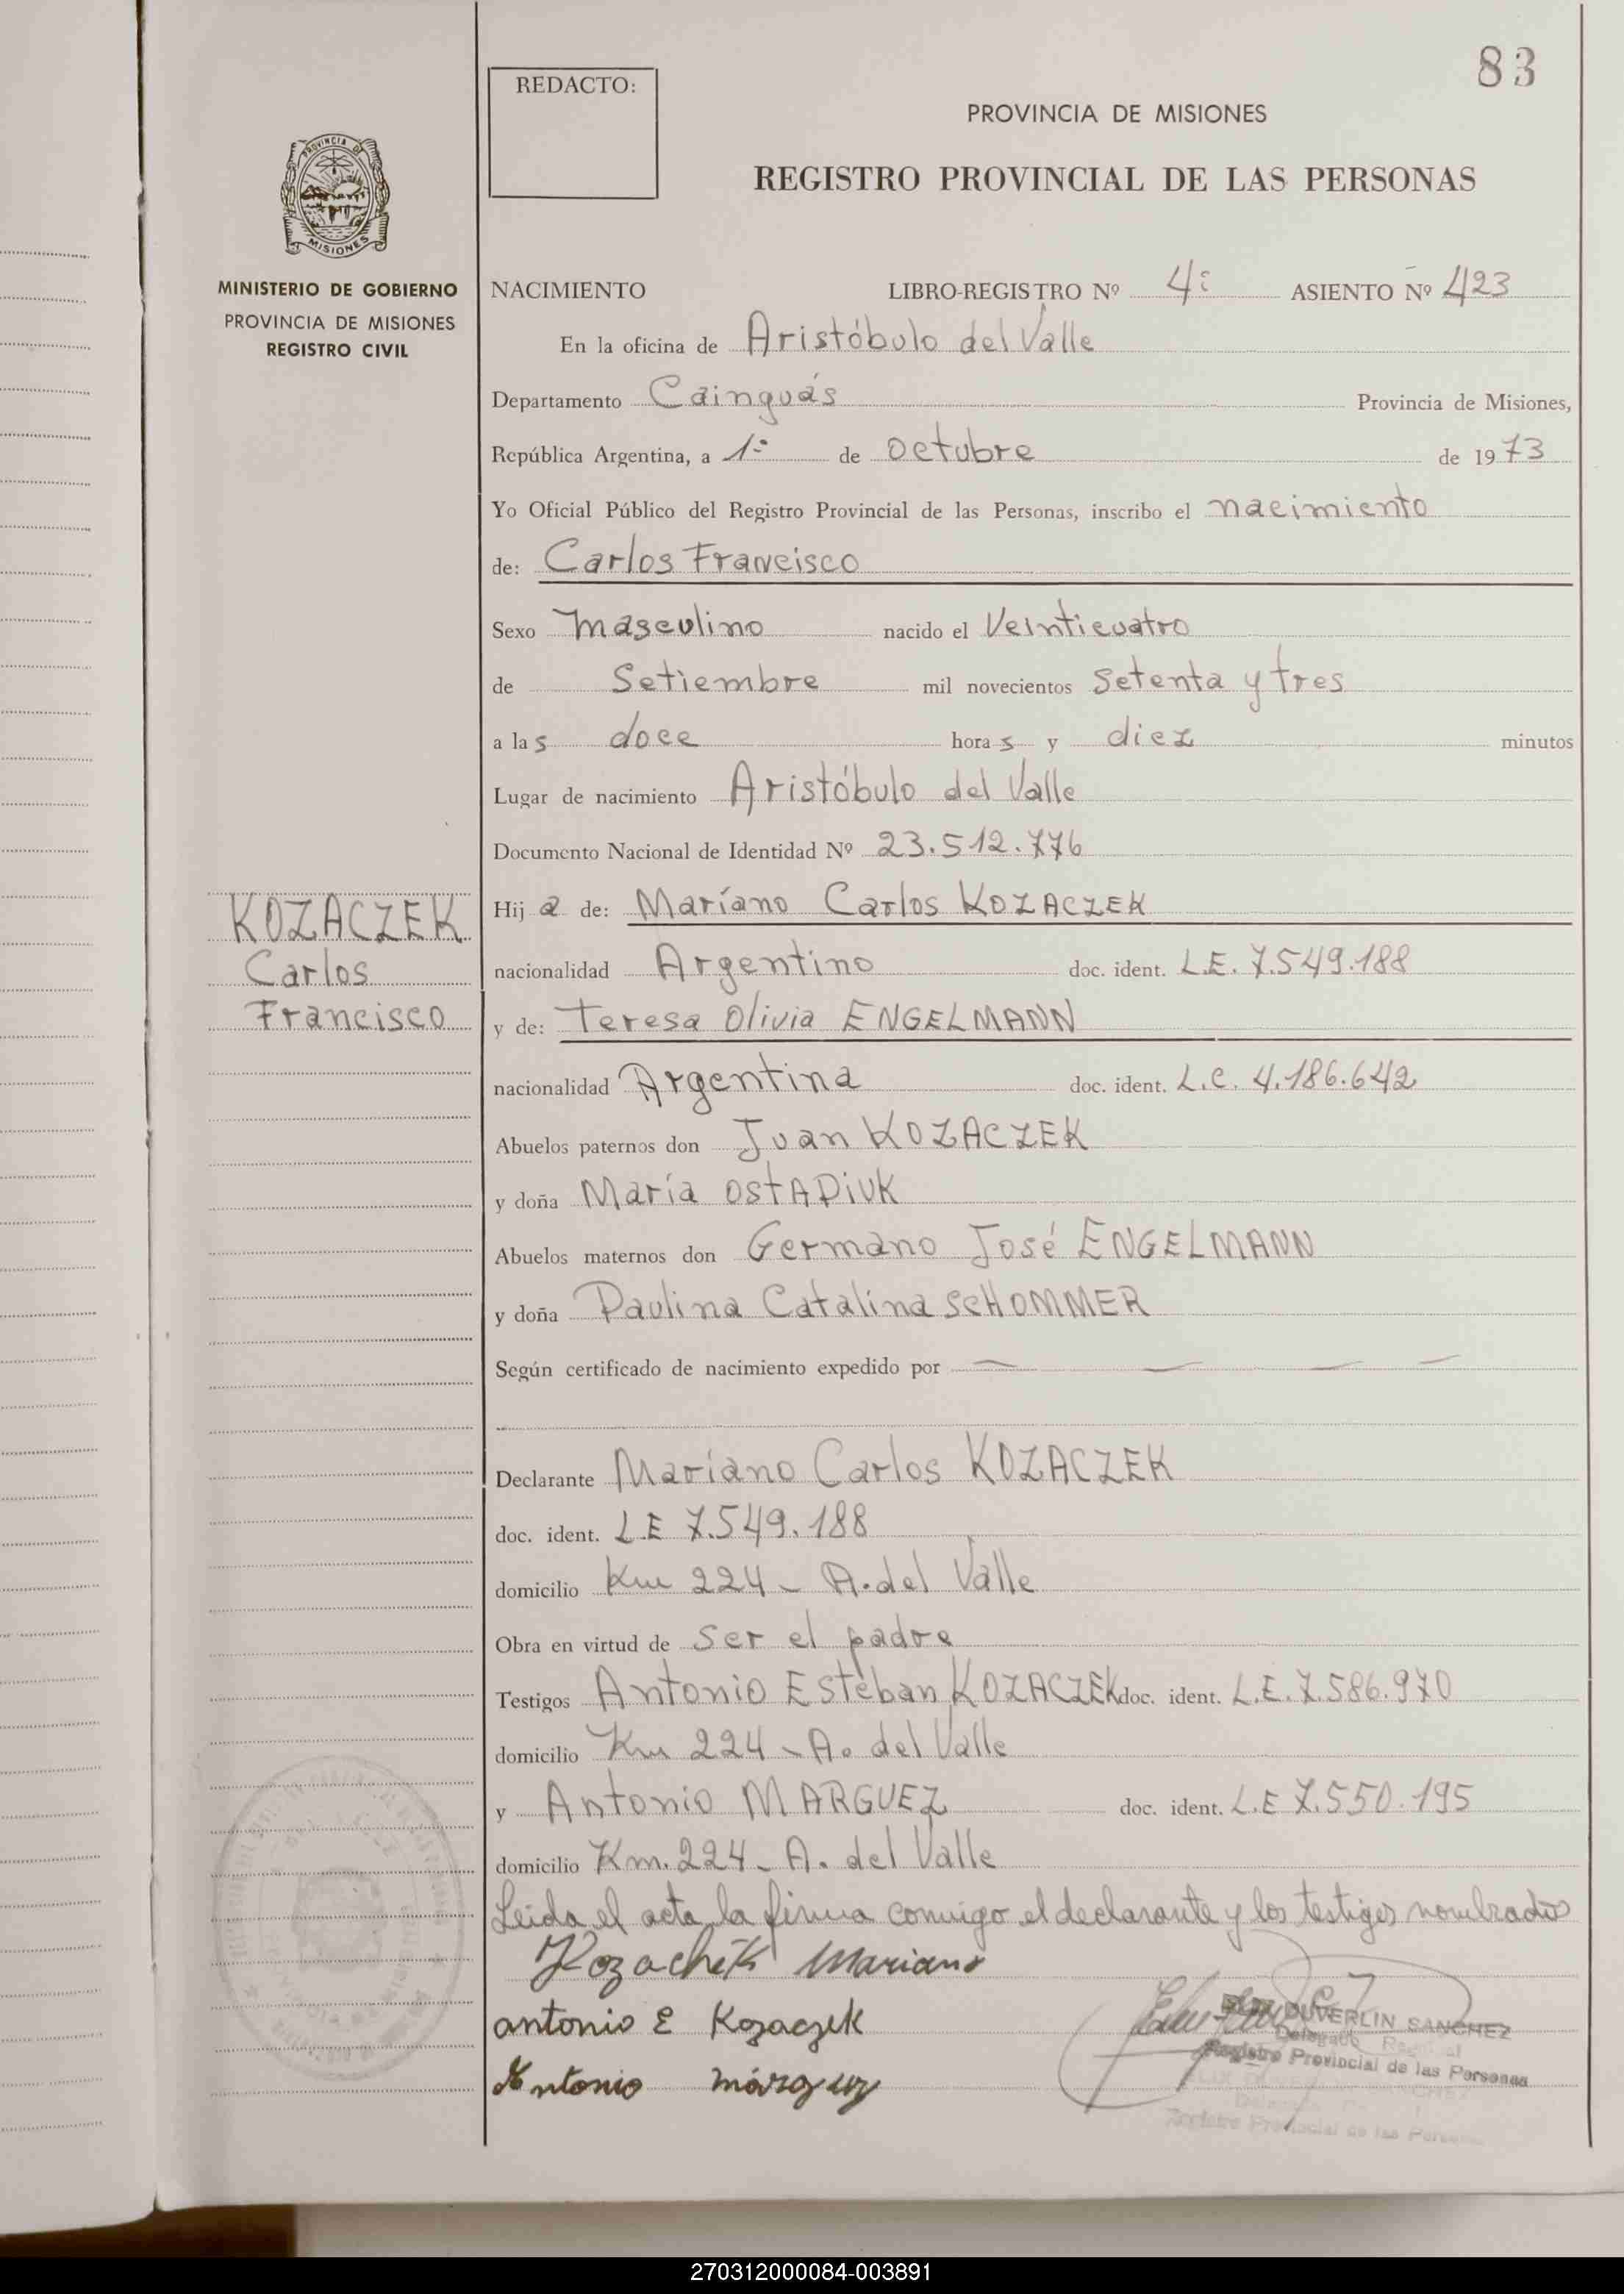 83
REDACTO:
PROVINCIA DE MISIONES
REGISTRO PROVINCIAL DE LAS PERSONAS
PROVINCIA DE
MISIONES
MINISTERIO DE GOBIERNO
PROVINCIA DE MISIONES
REGISTRO CIVIL
NACIMIENTO LIBRO-REGISTRO Nº 4º ASIENTO Nº 423
En la oficina de Aristóbulo del Valle
Departamento Cainguás Provincia de Misiones,
República Argentina, a 1º de octubre de 1973
Yo Oficial Público del Registro Provincial de las Personas, inscribo el nacimiento
de: Carlos Francisco
Sexo masculino nacido el Veinticuatro
de Setiembre mil novecientos setenta y tres
a las doce horas y diez minutos
Lugar de nacimiento Aristóbulo del Valle
Documento Nacional de Identidad Nº 23.512.776
KOZACZEK
Carlos
Francisco
Hija de: Mariano Carlos KOZACZEK
nacionalidad Argentino doc. ident. L.E. 7.549.188
y de: Teresa Olivia ENGELMANN
nacionalidad Argentina doc. ident. L.C. 4.186.642
Abuelos paternos don Juan KOZACZEK
y doña María OSTAPIUK
Abuelos maternos don Germano José ENGELMANN
y doña Paulina Catalina SCHOMMER
Según certificado de nacimiento expedido por — — — —
Declarante Mariano Carlos KOZACZEK
doc. ident. LE 7.549.188
domicilio Km 224 - A. del Valle
Obra en virtud de ser el padre
Testigos Antonio Estéban KOZACZEK doc. ident. L.E. 7.586.970
domicilio Km 224 - A. del Valle
y Antonio MARGUEZ doc. ident. L.E 7.550.195
domicilio Km. 224 - A. del Valle
Leida el acta, la firma conmigo el declarante y los testigos nombrados
Kozachek Mariano
antonio E Kozaczek
Antonio márquez
DUVERLIN SANCHEZ
Delegado
Registro Provincial de las Personas
Registro Provincial de las
270312000084-003891